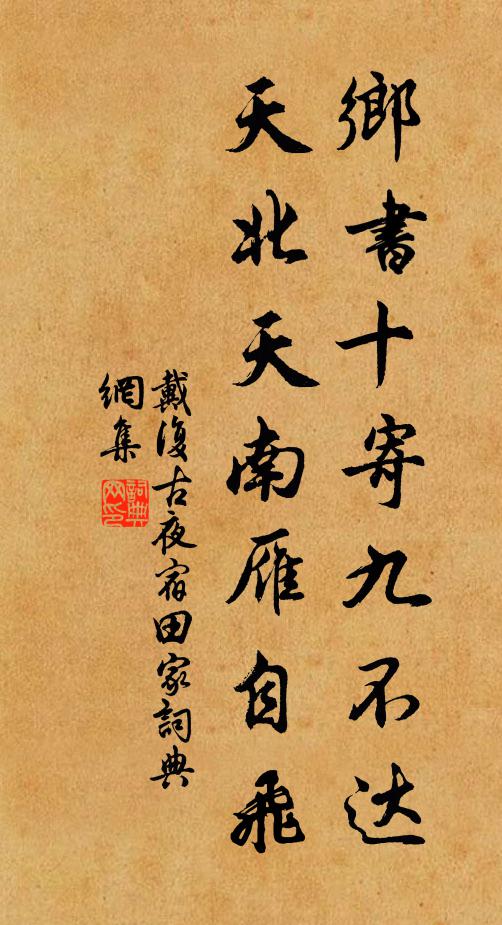 鄉書十寄九不达
天北天南雁自飛
戴復古夜宿田家詞典
網集
詞典
网印